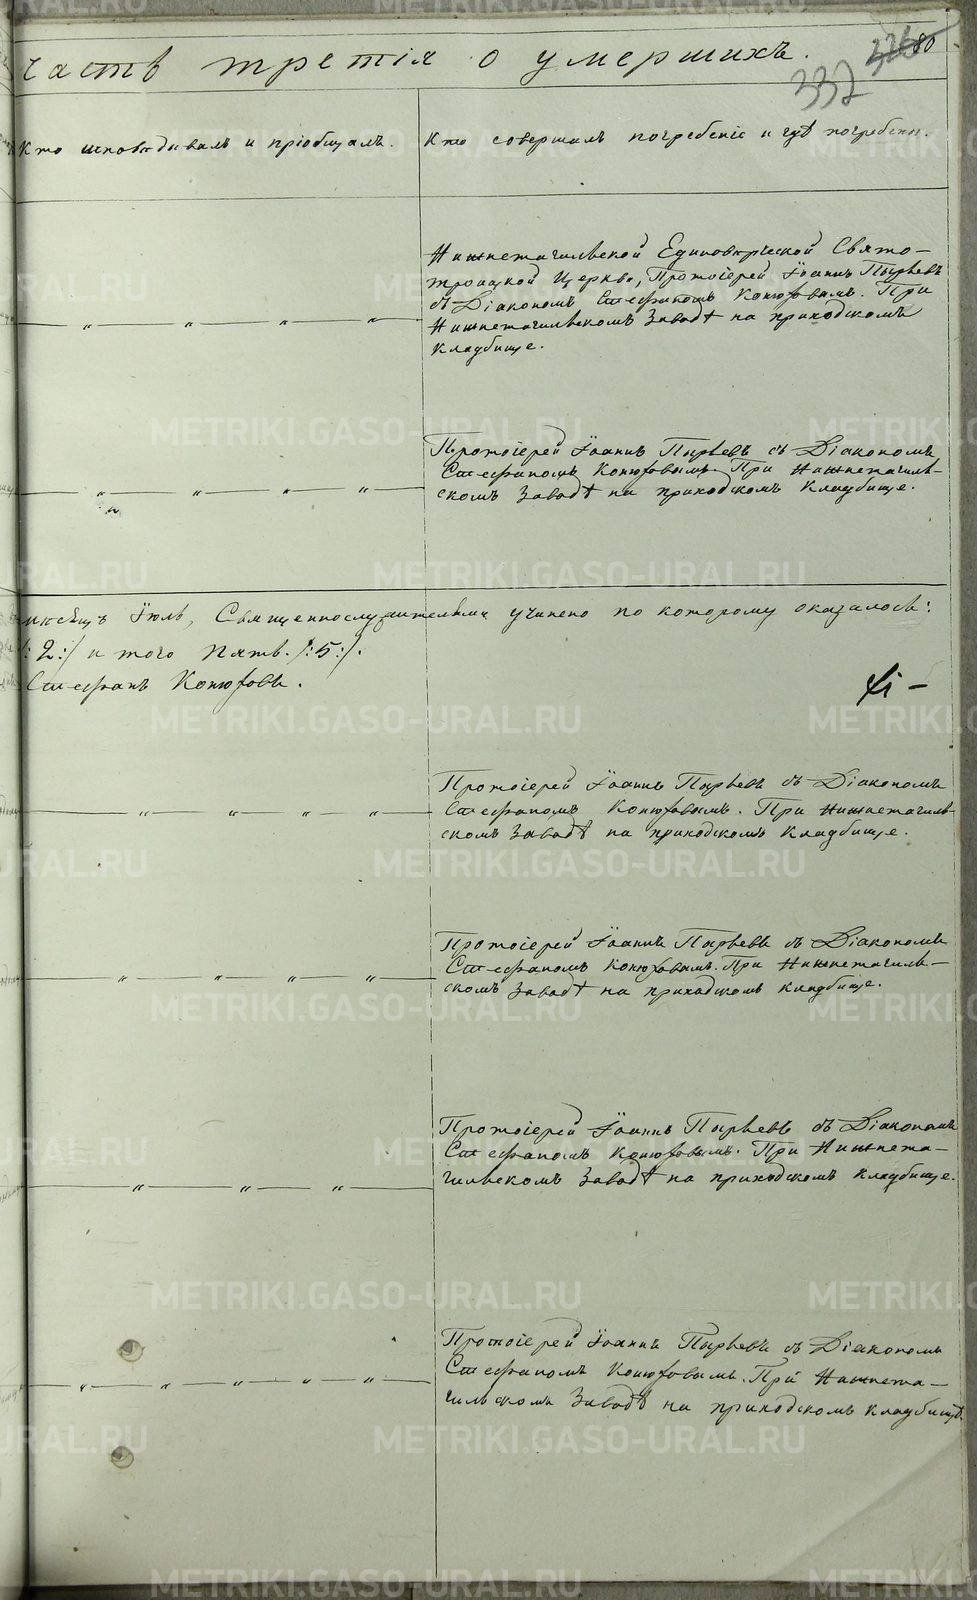 часть третія о умершихъ.
326 80
337
Кто исповѣдывалъ и пріобщалъ.
Кто совершалъ погребеніе и гдѣ погребены.
Нижнетагильской Единовѣрческой Свято-
троицкой Церкви, Протоіерей Іоаннъ Пырьевъ
съ Діакономъ Стефаномъ Конюховымъ. При
Нижнетагильскомъ Заводѣ на приходскомъ
Кладбище.
Протоіерей Іоаннъ Пырьевъ съ Діакономъ
Стефаномъ Конюховымъ. При Нижнетагиль-
скомъ Заводѣ на приходскомъ Кладбище.
мѣсецъ Іюль, Священнослужителями учинено по которому оказалось:
/:2:/ и того пять. /:5:/.
Стефанъ Конюховъ.
Протоіерей Іоаннъ Пырьевъ съ Діакономъ
Стефаномъ Конюховымъ. При Нижнетагиль-
скомъ Заводѣ на приходскомъ Кладбище.
Протоіерей Іоаннъ Пырьевъ съ Діакономъ
Стефаномъ Конюховымъ. При Нижнетагиль-
скомъ Заводѣ на приходскомъ Кладбище.
Протоіерей Іоаннъ Пырьевъ съ Діакономъ
Стефаномъ Конюховымъ. При Нижнета-
гильскомъ Заводѣ на приходскомъ Кладбище.
Протоіерей Іоаннъ Пырьевъ съ Діакономъ
Стефаномъ Конюховымъ. При Нижнета-
гильскомъ Заводѣ на приходскомъ Кладбищѣ.
METRIKI.GASO-URAL.RU